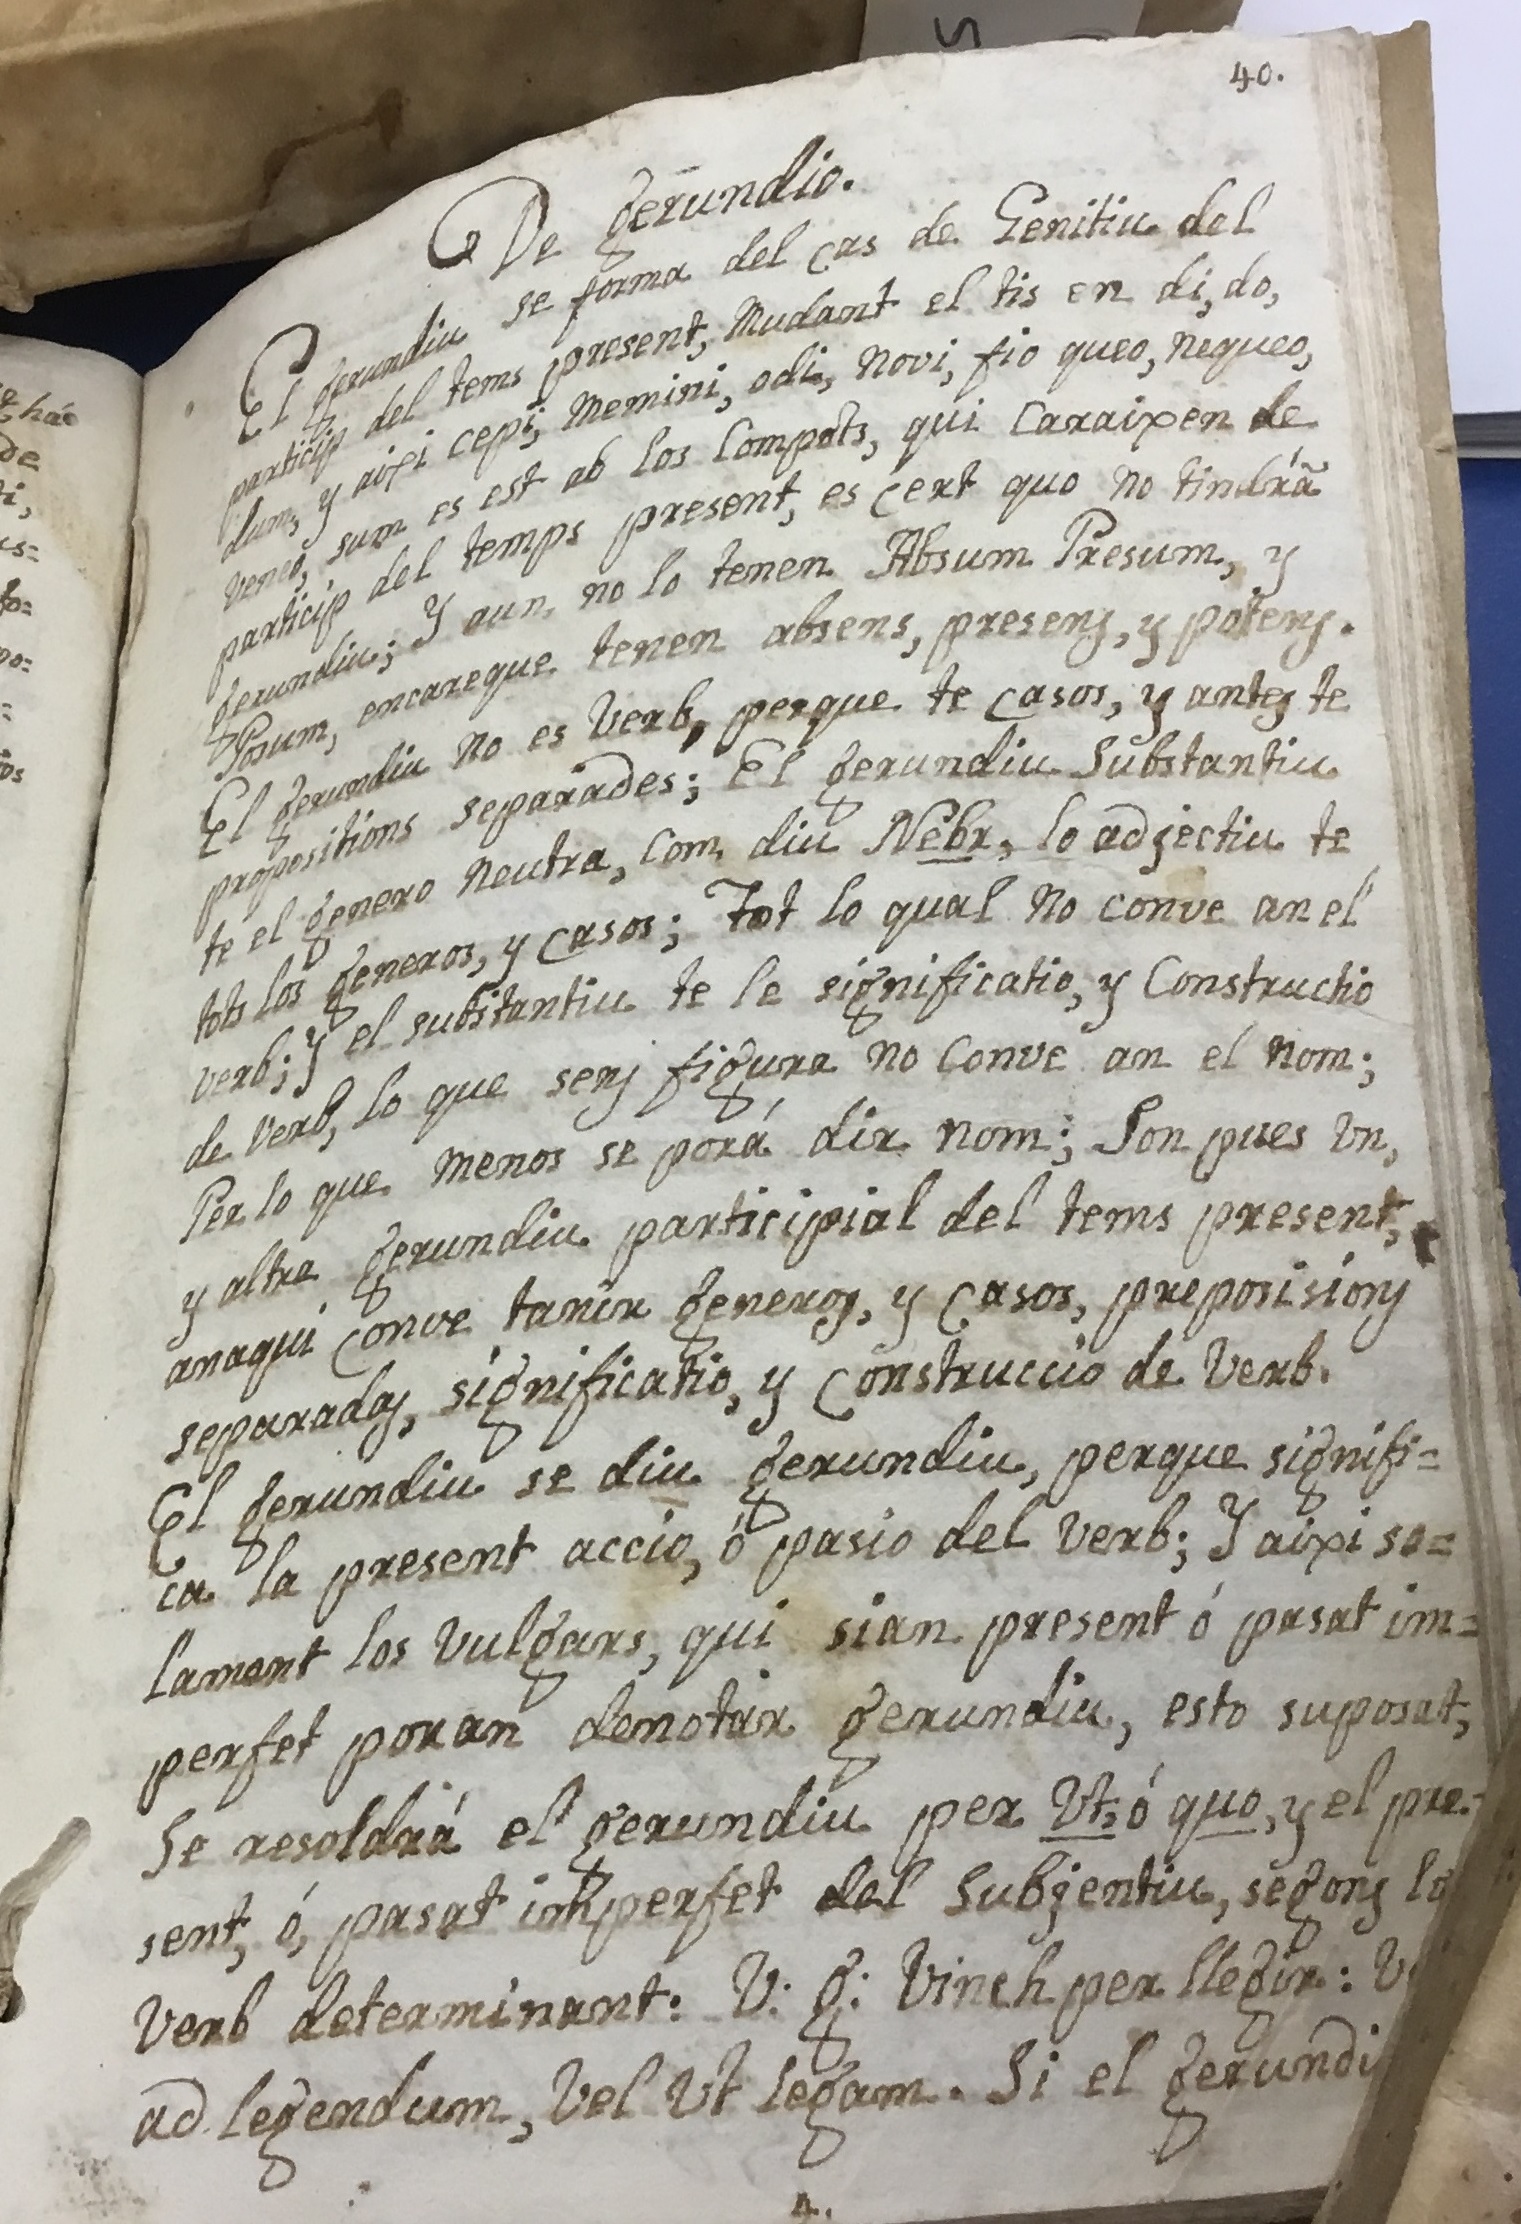 40.
De gerundio.
El gerundiu se forma del cas de Genitiu del
particip del tems present, Mudant el tis en di, do,
dum, y aixi cepi, Memini, odi, Novi, fio queo, nequeo,
veneo, sum es est ab los Compots, qui Caraixen de
particip del temps present, es cert quo no tindrã
gerundiu; Y aun no lo tenen Absum Presum, y
Posum, encareque tenen absens, presens, y potens.
El gerundiu No es Verb, perque te casos, y antes te
propositions separades; El gerundiu Substantiu
te el genero Neutra, Com diu Nebr, lo adjectiu te
tots los generos, y casos; Tot lo qual No conve an el
verb; Y el substantiu te le significatio, y Constructio
de Verb, lo que sens figura no Conve an el nom;
Per lo que Menos se porá dir nom; Son pues Un,
y altre gerundiu participial del tems present,
anaqui Conve tanir generos, y Casos, preposisions
separadas, significatio, y Construccio de Verb.
El gerundiu se diu gerundiu, perque signifi=
ca la present accio, ó pasio del Verb; Y aixi so=
lament los Vulgars, qui sian present ó pasat im=
perfet poran denotar gerundiu, esto suposat,
Se resoldrá el gerundiu per Ut, ó quo, y el pre=
sent, ó, pasat imperfet del Subjentiu, segons lo
Verb determinant: V: g: Vinch per llegir:
ad legendum, Vel Ut legam. Si el gerundi